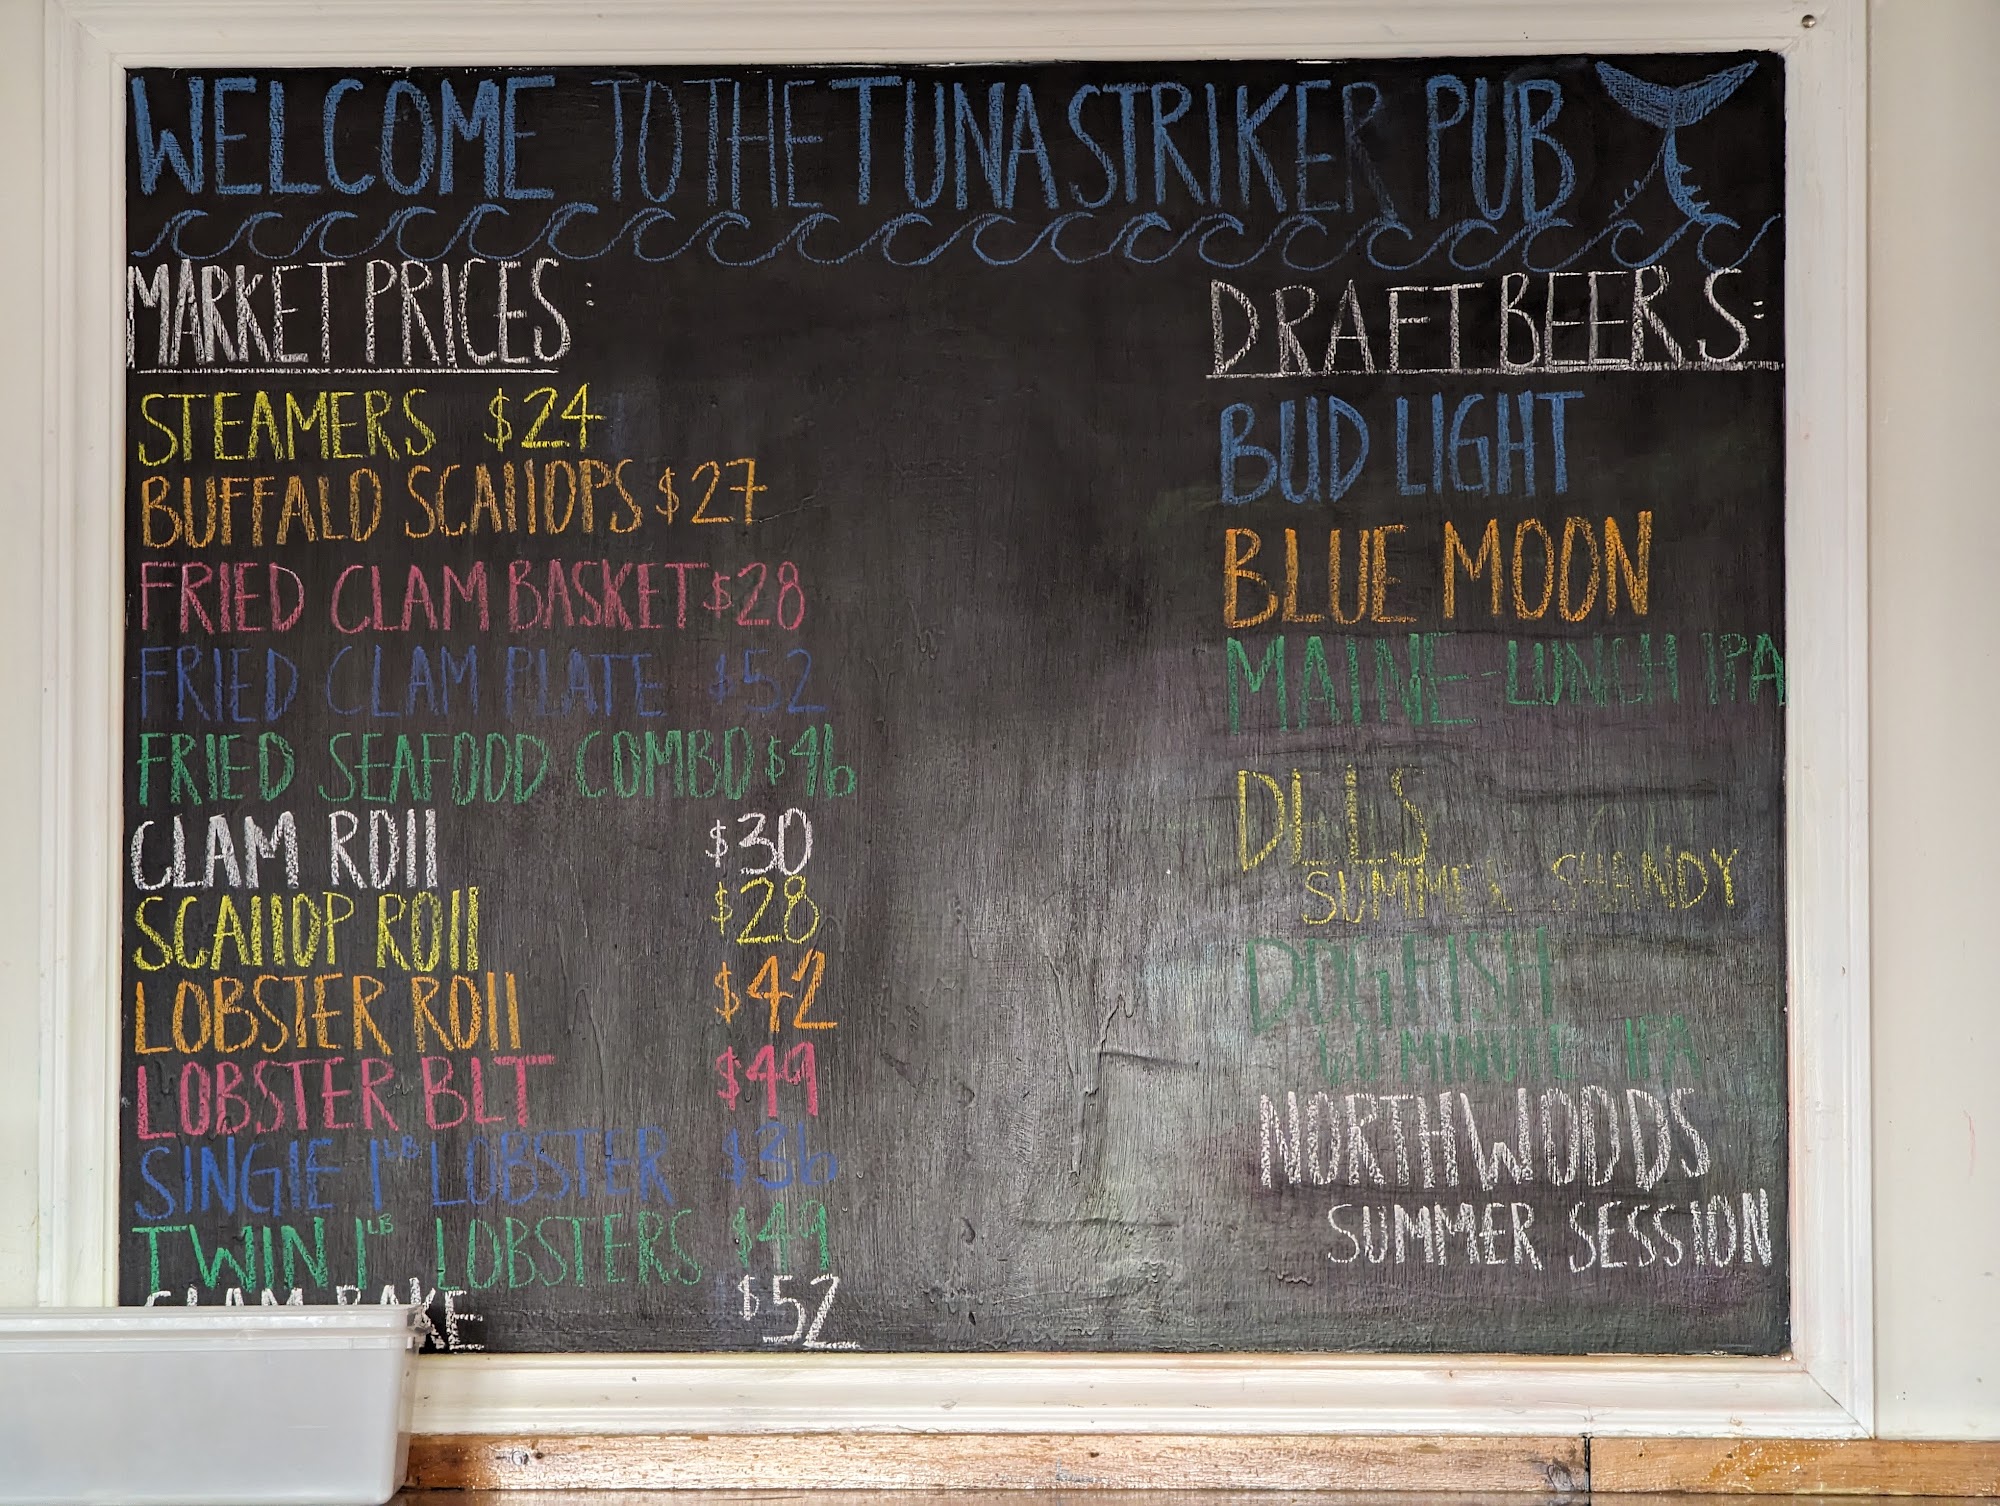 WELCOME TO THE TUNA STRIKER PUB
MARKET PRICES:
STEAMERS $24
BUFFALO SCALLOPS $27
FRIED CLAM BASKET $28
FRIED CLAM PLATE $52
FRIED SEAFOOD COMBO $46
CLAM ROLL $30
SCALLOP ROLL $28
LOBSTER ROLL $42
LOBSTER BLT $49
SINGLE 1LB LOBSTER $36
TWIN 1LB LOBSTERS $49
CLAM BAKE $52
DRAFT BEERS:
BUD LIGHT
BLUE MOON
MAINE - LUNCH IPA
DELS
SUMMER SHANDY
DOGFISH
60 MINUTE IPA
NORTHWOODS
SUMMER SESSION